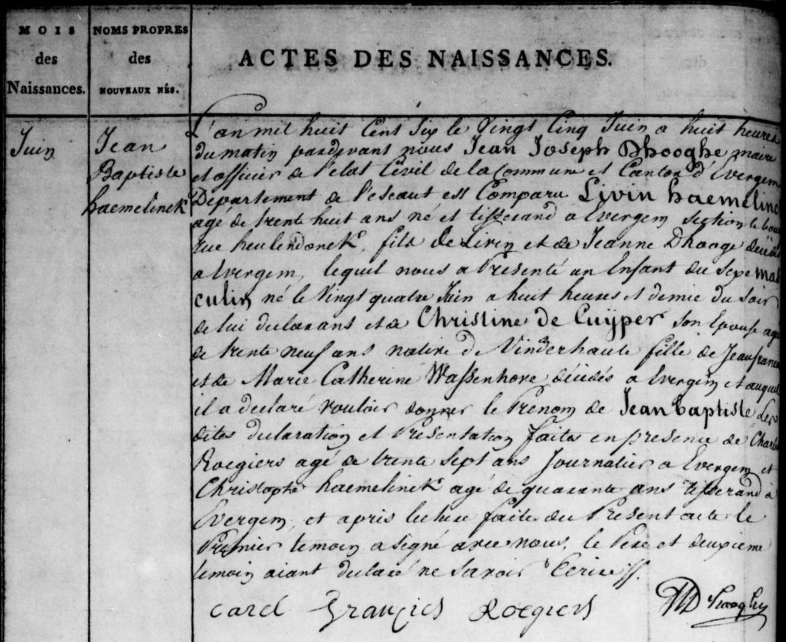 MOIS
des
Naissances.
NOMS PROPRES
des
NOUVEAUX NÉS.
ACTES DES NAISSANCES.
Juin
Jean
Baptiste
haemelinck
L'an mil huit Cent Six le Vingt Cinq Juin a huit heures
du matin pardevant nous Jean Joseph Dhooghe maire
et officier de l'etat Civil de la Commune et Canton d'Evergem
Departement de l'escaut est Comparu Livin haemelinc
agé de trente huit ans né et tisserand a Evergem section le
rue heulendonck, fils de Livin et de Jeanne Dhooge décédés
a Evergem, lequel nous a Présenté un Enfant du sexe mas
culin né le Vingt quatre Juin a huit heures et demie du Soir
de lui declarans et de Christine de Cuÿper son Epouse agé
de trente neuf ans native de Vinderhaute fille de Jean francois
et de Marie Catherine Wassenhove décédés a Evergem et auquel
il a declaré vouloir donner le Prenom de Jean Baptiste Les
dites declaration et Presentation faites en presence de Charles
Roegiers agé de trente sept ans Journalier a Evergem et
Christophe haemelinck agé de quarante ans tisserand a
Evergem, et après lecture faite du Present acte le
Premier temoin a signé avec nous, le Pere et deuxieme
temoin aiant declaré ne savoir Ecrire.
carel françies Roegiers